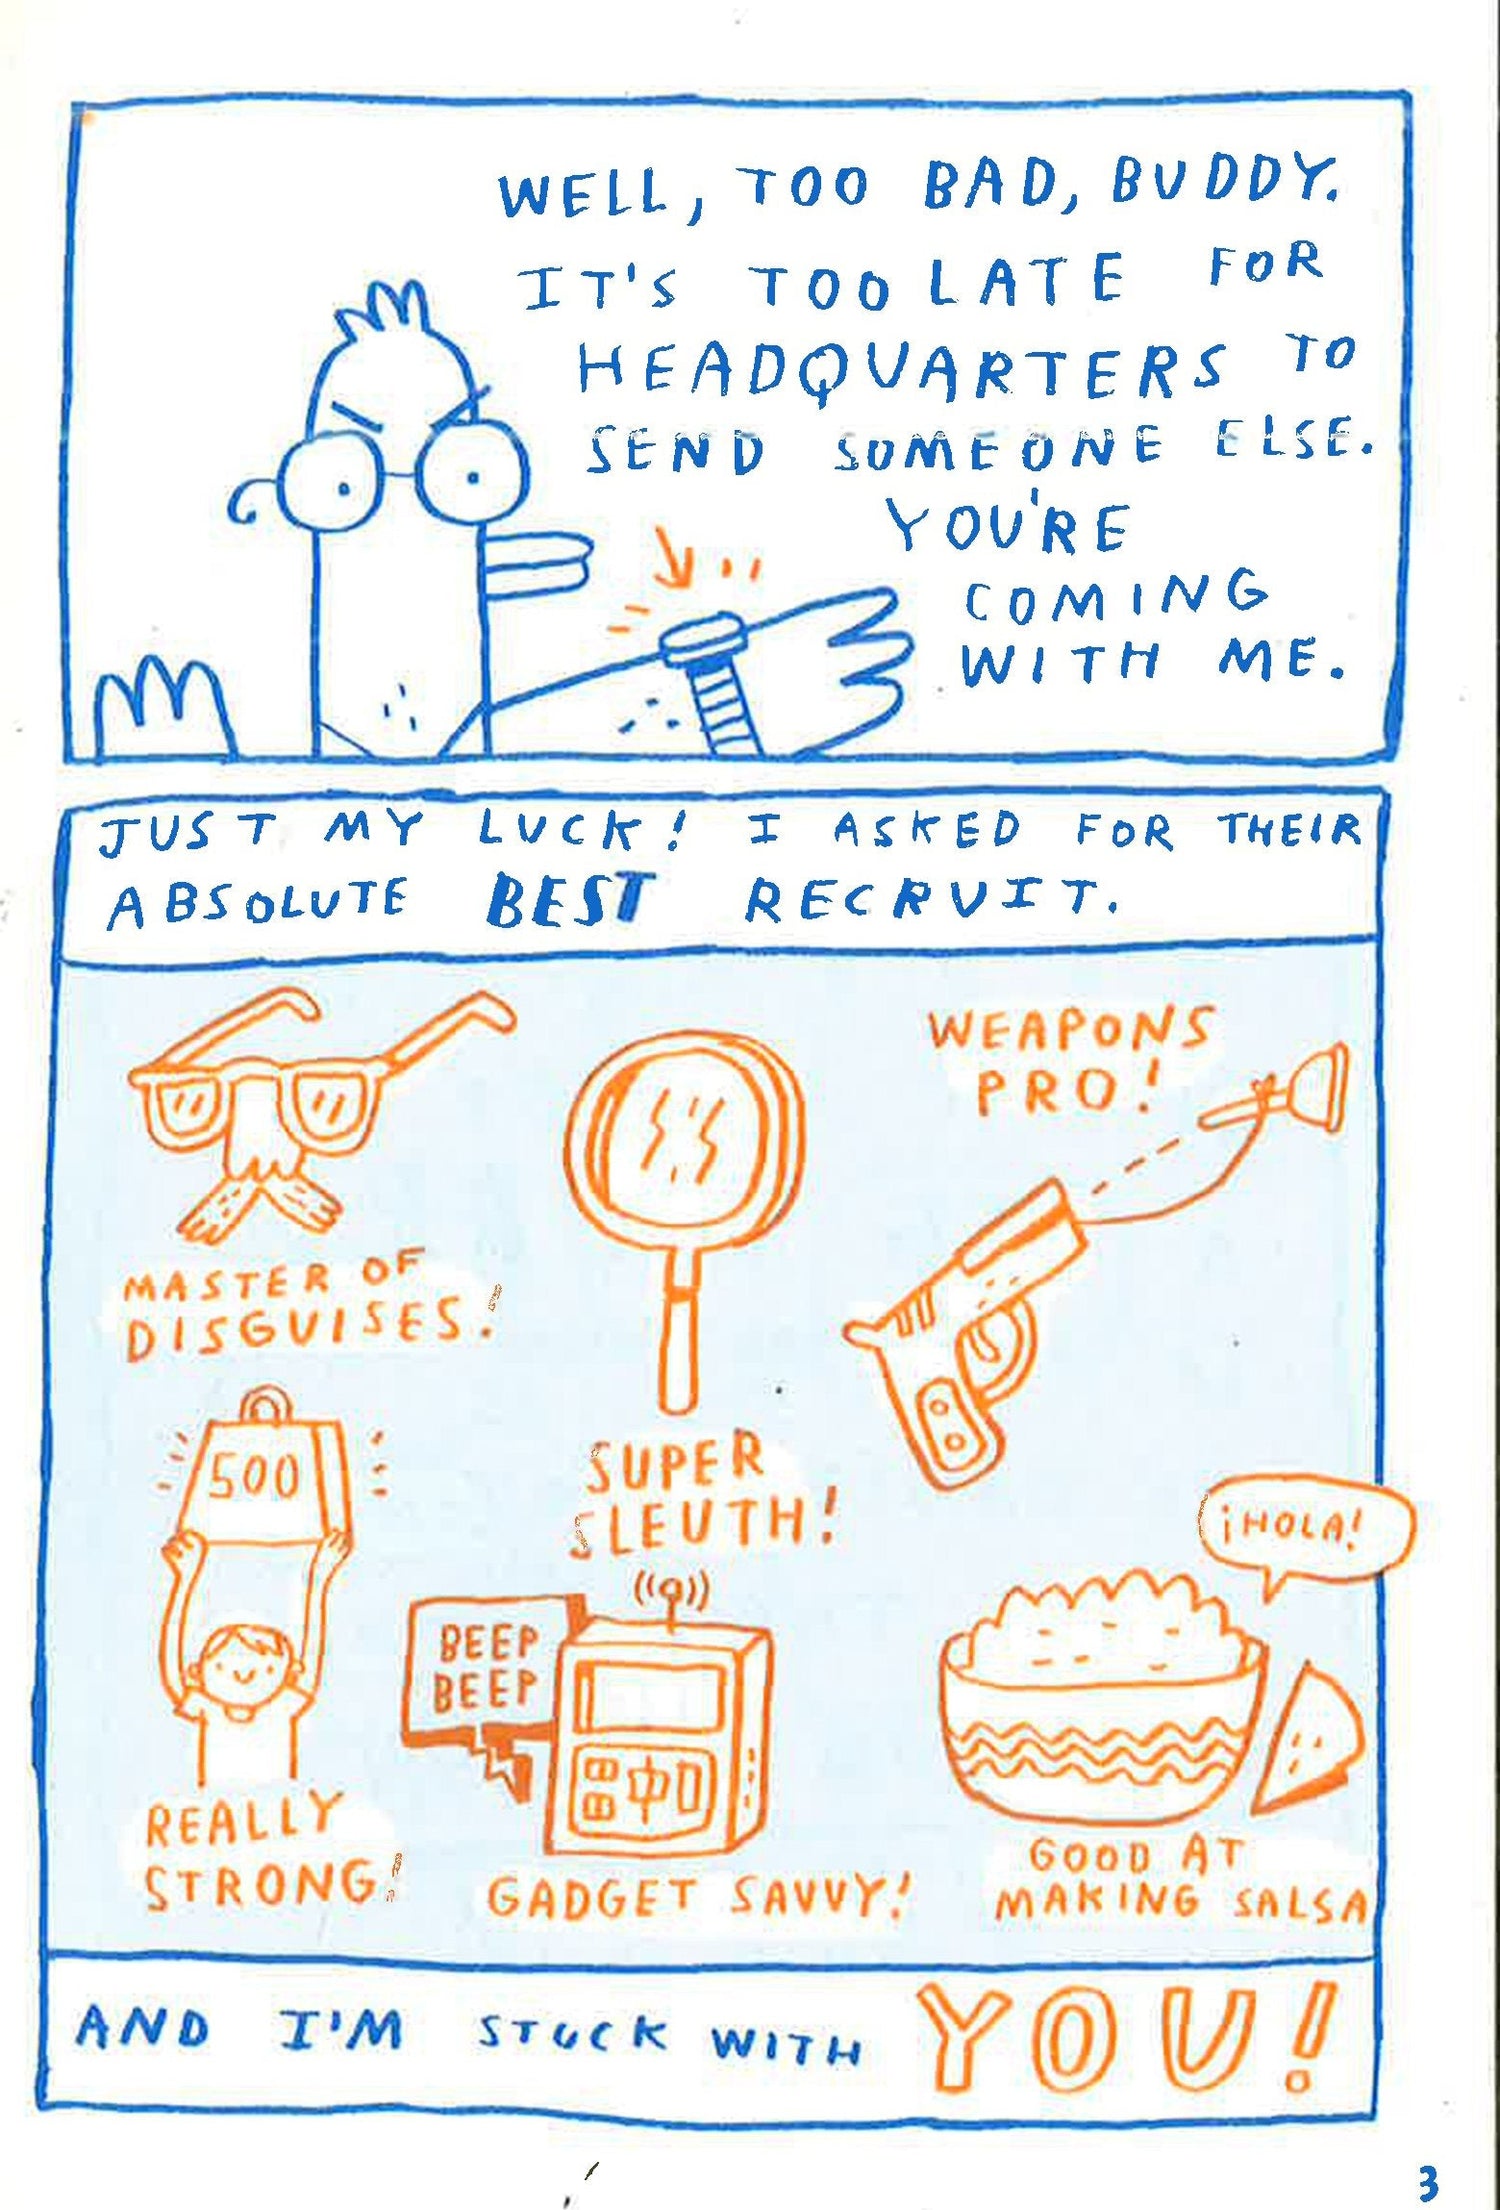 WELL, TOO BAD, BUDDY.
IT'S TOO LATE FOR
HEADQUARTERS TO
SEND SOMEONE ELSE.
YOU'RE
COMING
WITH ME.
JUST MY LUCK! I ASKED FOR THEIR
ABSOLUTE BEST RECRUIT.
MASTER OF
DISGUISES!
SUPER
SLEUTH!
WEAPONS
PRO!
500
REALLY
STRONG!
BEEP
BEEP
GADGET SAVVY!
¡HOLA!
GOOD AT
MAKING SALSA
AND I'M STUCK WITH YOU!
3